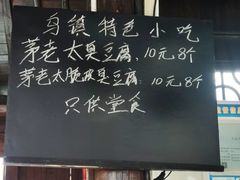 乌镇特色小吃
茅老太臭豆腐，10元8个
茅老太脆皮臭豆腐：10元8个
只供堂食